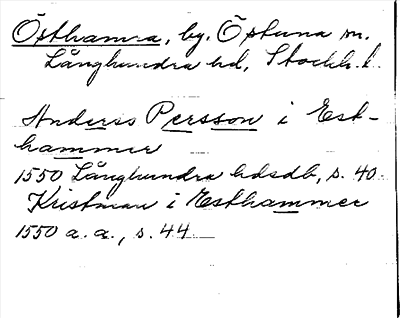 Östhamra, by. Östuna sn.
Långhundra hd, Stockh. l.
Anders Persson i Est-
hammer
1550 Långhundra hdsdb, s. 40.
Kristman i Esthammer
1550 a. a., s. 44